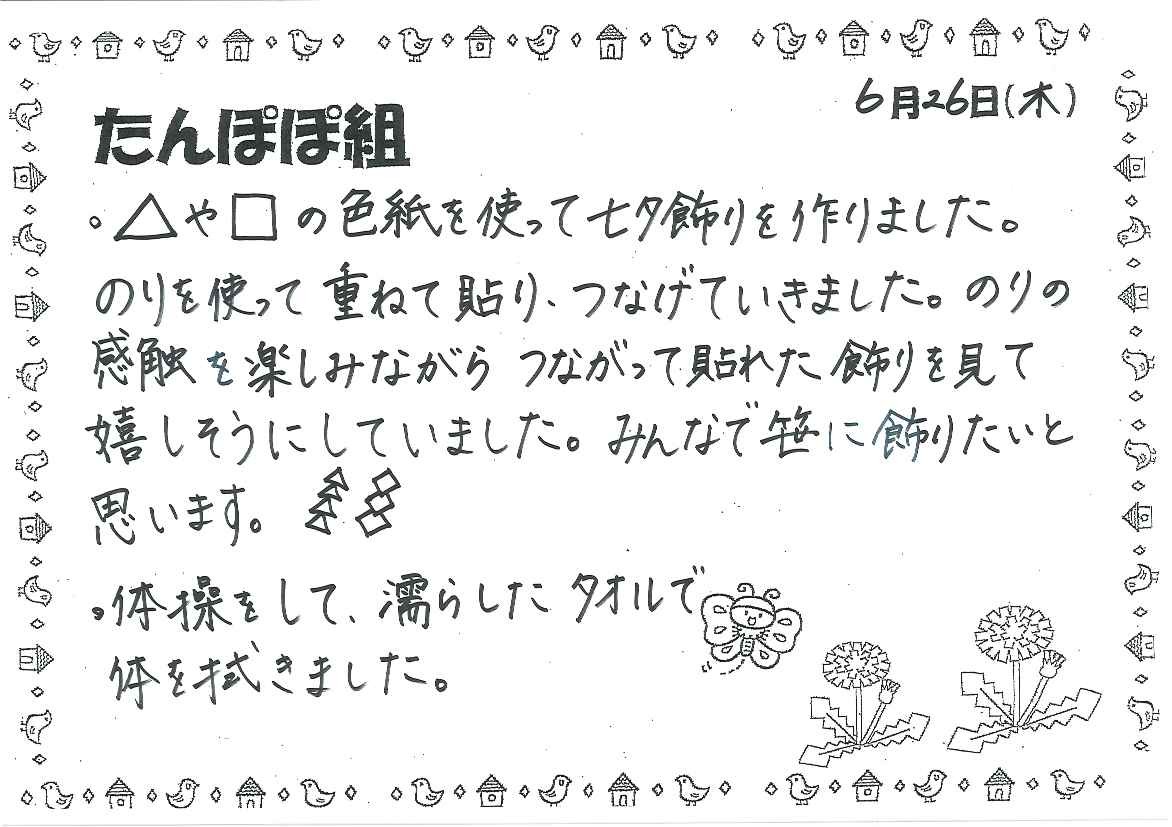 6月26日(木)
たんぽぽ組
。△や□の色紙を使って七夕飾りを作りました。
のりを使って重ねて貼り、つなげていきました。のりの
感触を楽しみながら つながって貼れた飾りを見て
嬉しそうにしていました。みんなで笹に飾りたいと
思います。
。体操をして、濡らしたタオルで
体を拭きました。